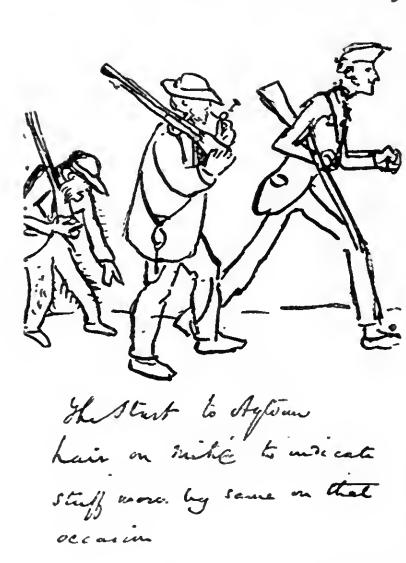 The Start to
hair on to indicate
stuff worn by same on that
occasion